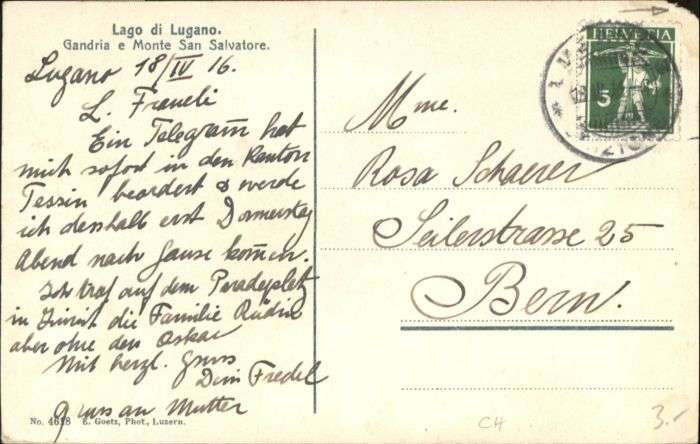 Lago di Lugano.
Gandria e Monte San Salvatore.
Lugano 18/IV 16.
L. Fraueli
Ein Telegram̄ hat
mich sofort in den Kanton
Tessin beordert & werde
ich desshalb erst Donnerstag
Abend nach Hause kom̄en.
Ich traf auf dem Paradeplatz
in Zürich die Familie Rüdin
aber ohne den Oskar
Mit herzl. Gruss
Dein Fredel
Gruss an Mutter
No. 4618 E. Goetz, Phot., Luzern.
HELVETIA
5
Mme.
Rosa Schaerer
Seilerstrasse 25
Bern.
CH
3.-